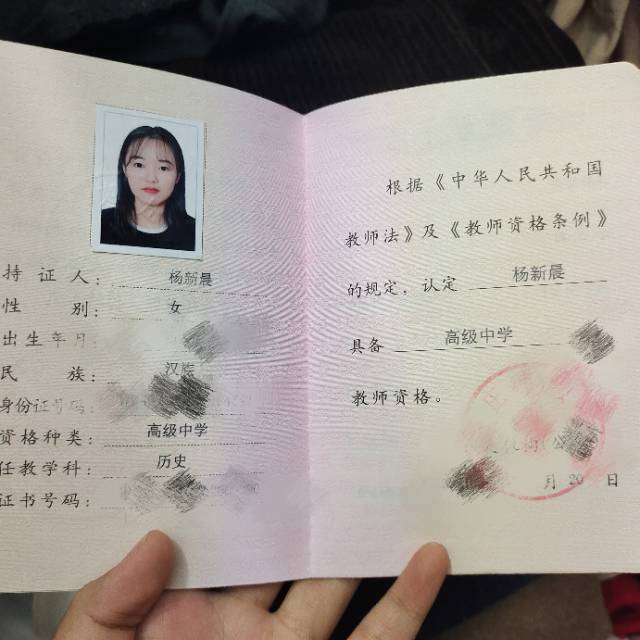 持证人：杨新晨
性别：女
出生年月：
民族：汉族
身份证号码：
资格种类：高级中学
任教学科：历史
证书号码：
根据《中华人民共和国
教师法》及《教师资格条例》
的规定，认定 杨新晨
具备 高级中学
教师资格。
月20日